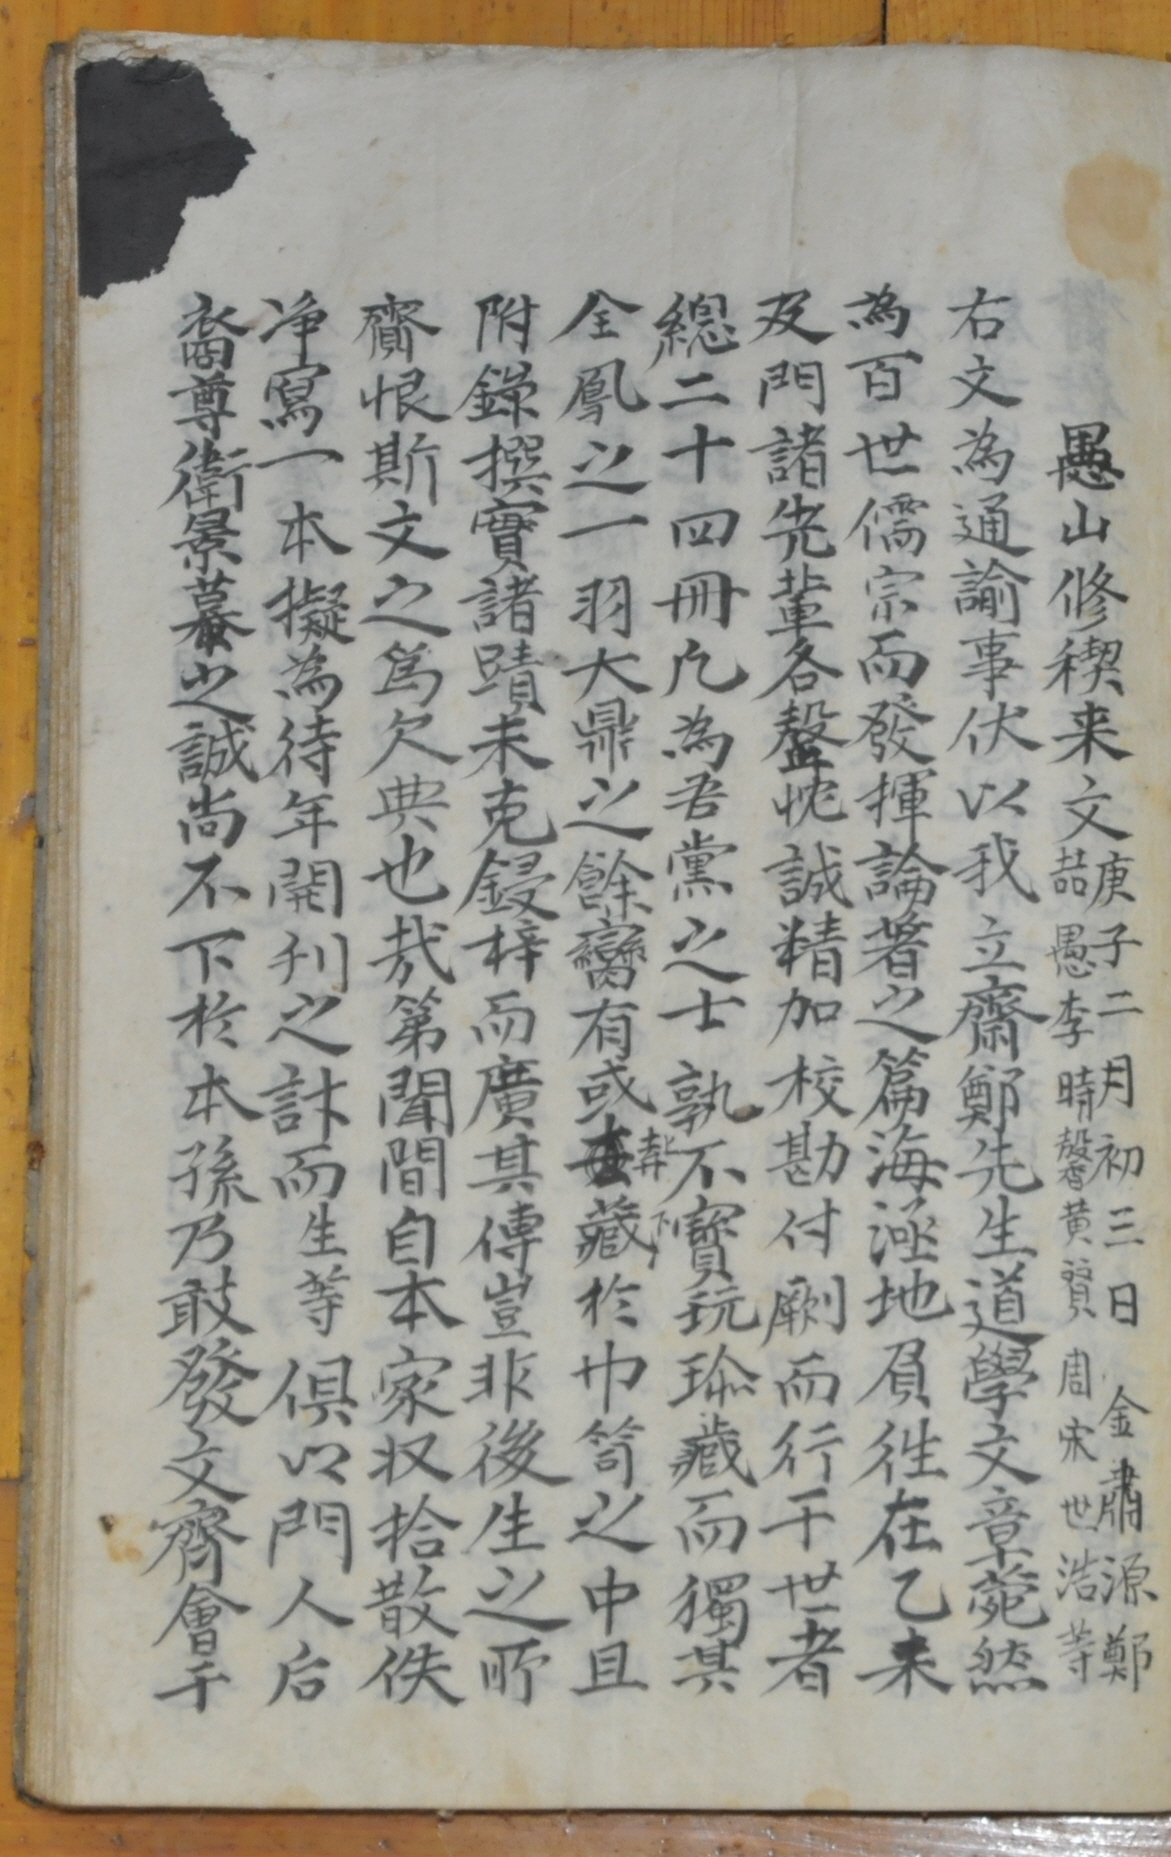 愚山修稧来文 庚子二月初三日 金肅源鄭
喆愚李時馨黄贇周宋世浩等
右文為通諭事伏以我立齋鄭先生道學文章菀然
為百世儒宗而發揮論著之篇海涵地負徃在乙未
及門諸先輩各罄忱誠精加校勘付劂而行于世者
總二十四冊凡為吾黨之士孰不寳玩珍藏而獨其
全鳳之一羽大鼎之餘臠有或藏於巾笥之中且
附錄撰實諸蹟未克鋟梓而廣其傳豈非後生之所
齎恨斯文之爲欠典也哉第聞間自本家収拾散佚
净寫一本擬為待年開刋之計而生等俱以門人后
裔尊衛景慕之誠尚不下於本孫乃敢發文齊會于